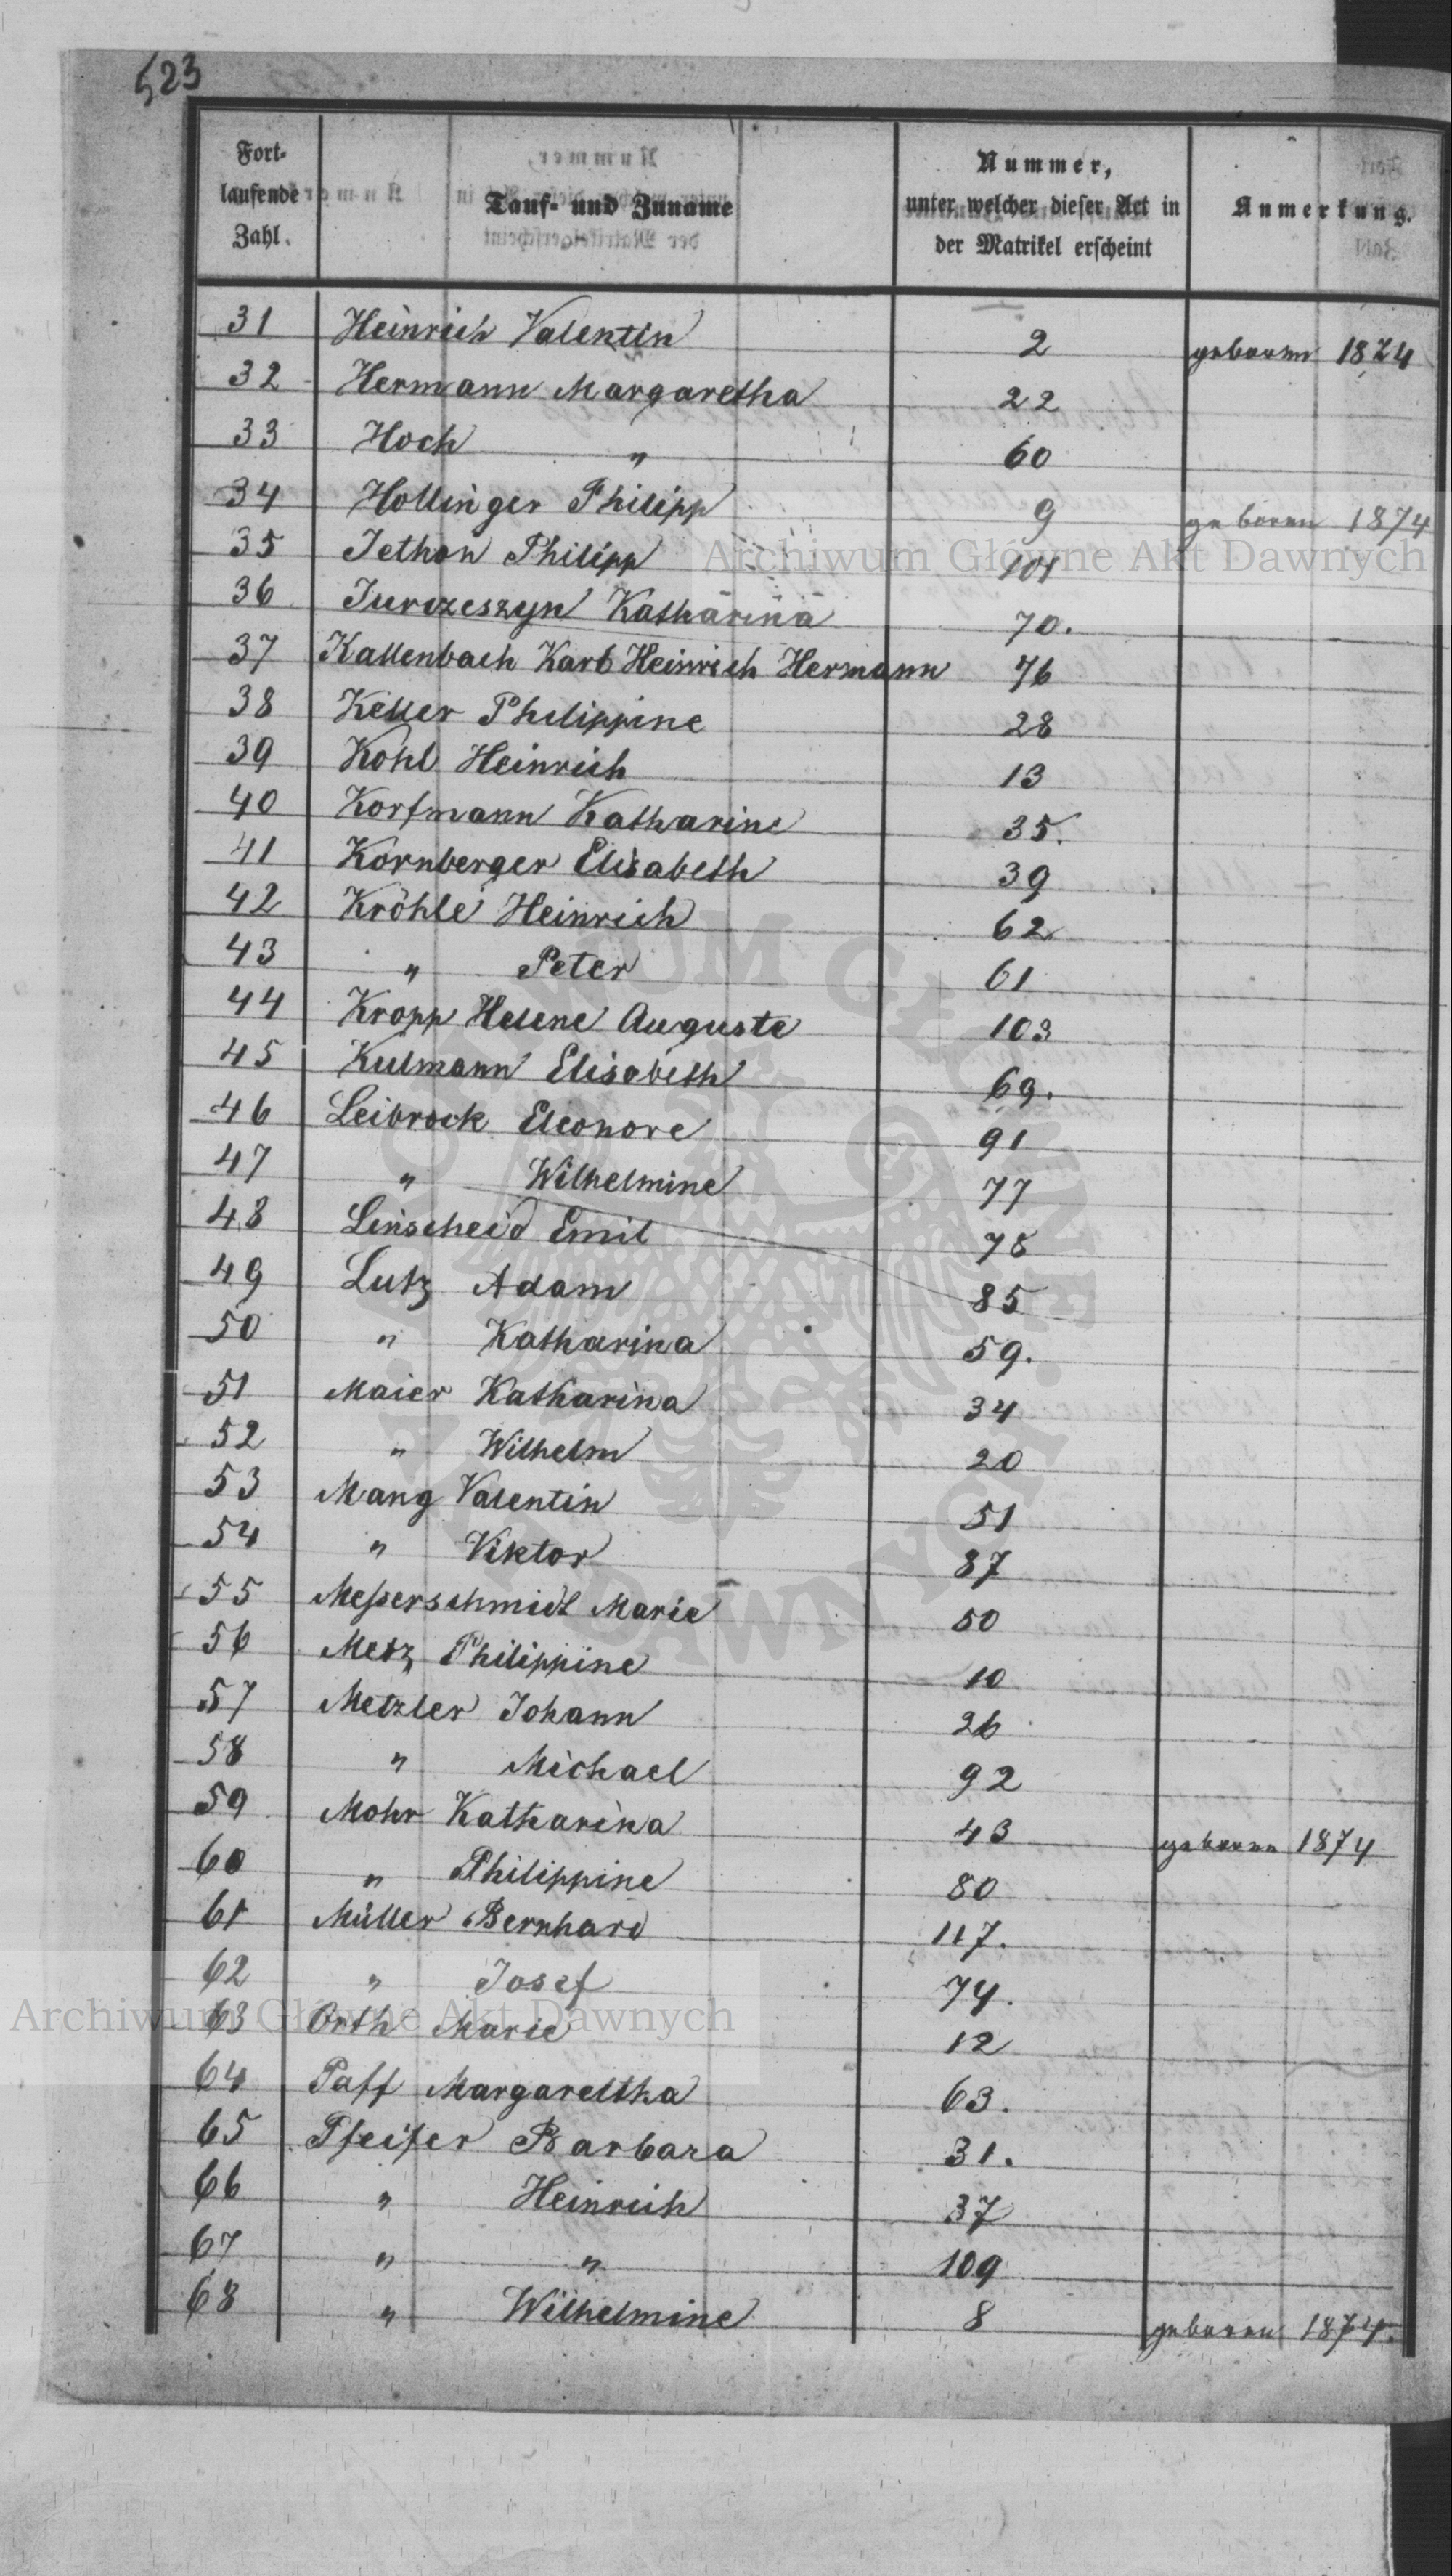 523
Fort-laufende Zahl. Tauf- und Zuname Nummer, unter welcher dieser Act in der Matrikel erscheint Anmerkung.
31 Heinrich Valentin 2 geboren 1874
32 Hermann Margaretha 22
33 Hoch " 60
34 Hollinger Philipp 9 geboren 1874
35 Jethon Philipp 101
36 Jurczeszyn Katharina 70.
37 Kallenbach Karl Heinrich Hermann 76
38 Keller Philippine 28
39 Kohl Heinrich 13
40 Korfmann Katharine 35.
41 Kornberger Elisabeth 39
42 Kröhle Heinrich 62
43 " Peter 61
44 Kropp Helene Auguste 103
45 Kulmann Elisabeth 69.
46 Leibrock Eleonore 91
47 " Wilhelmine 77
48 Linscheid Emil 78
49 Lutz Adam 85
50 " Katharina 59.
51 Maier Katharina 34
52 " Wilhelm 20
53 Mang Valentin 51
54 " Viktor 87
55 Meſserschmidt Marie 50
56 Metz Philippine 10
57 Metzler Johann 26
58 " Michael 92
59 Mohr Katharina 43 geboren 1874
60 " Philippine 80
61 Müller Bernhard 117.
62 " Josef 74.
63 Orth Marie 12
64 Paff Margareltha 63.
65 Pfeifer Barbara 31.
66 " Heinrich 37
67 " " 109
68 " Wilhelmine 8 geboren 1874.
Archiwum Główne Akt Dawnych
Archiwum Główne Akt Dawnych